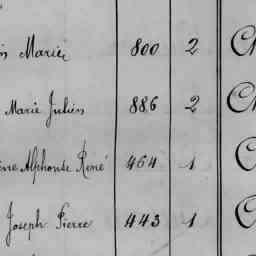 Marie 800 2
Marie Julien 886 2
Alphonse René 464 1
Joseph Pierre 443 1